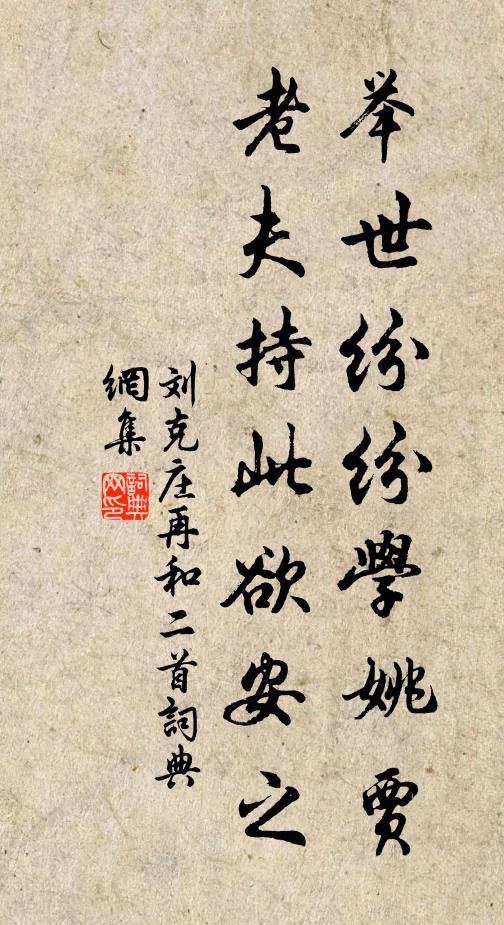 举世纷纷學姚贾
老夫持此欲安之
刘克庄再和二首詞典
網集
詞典
网印